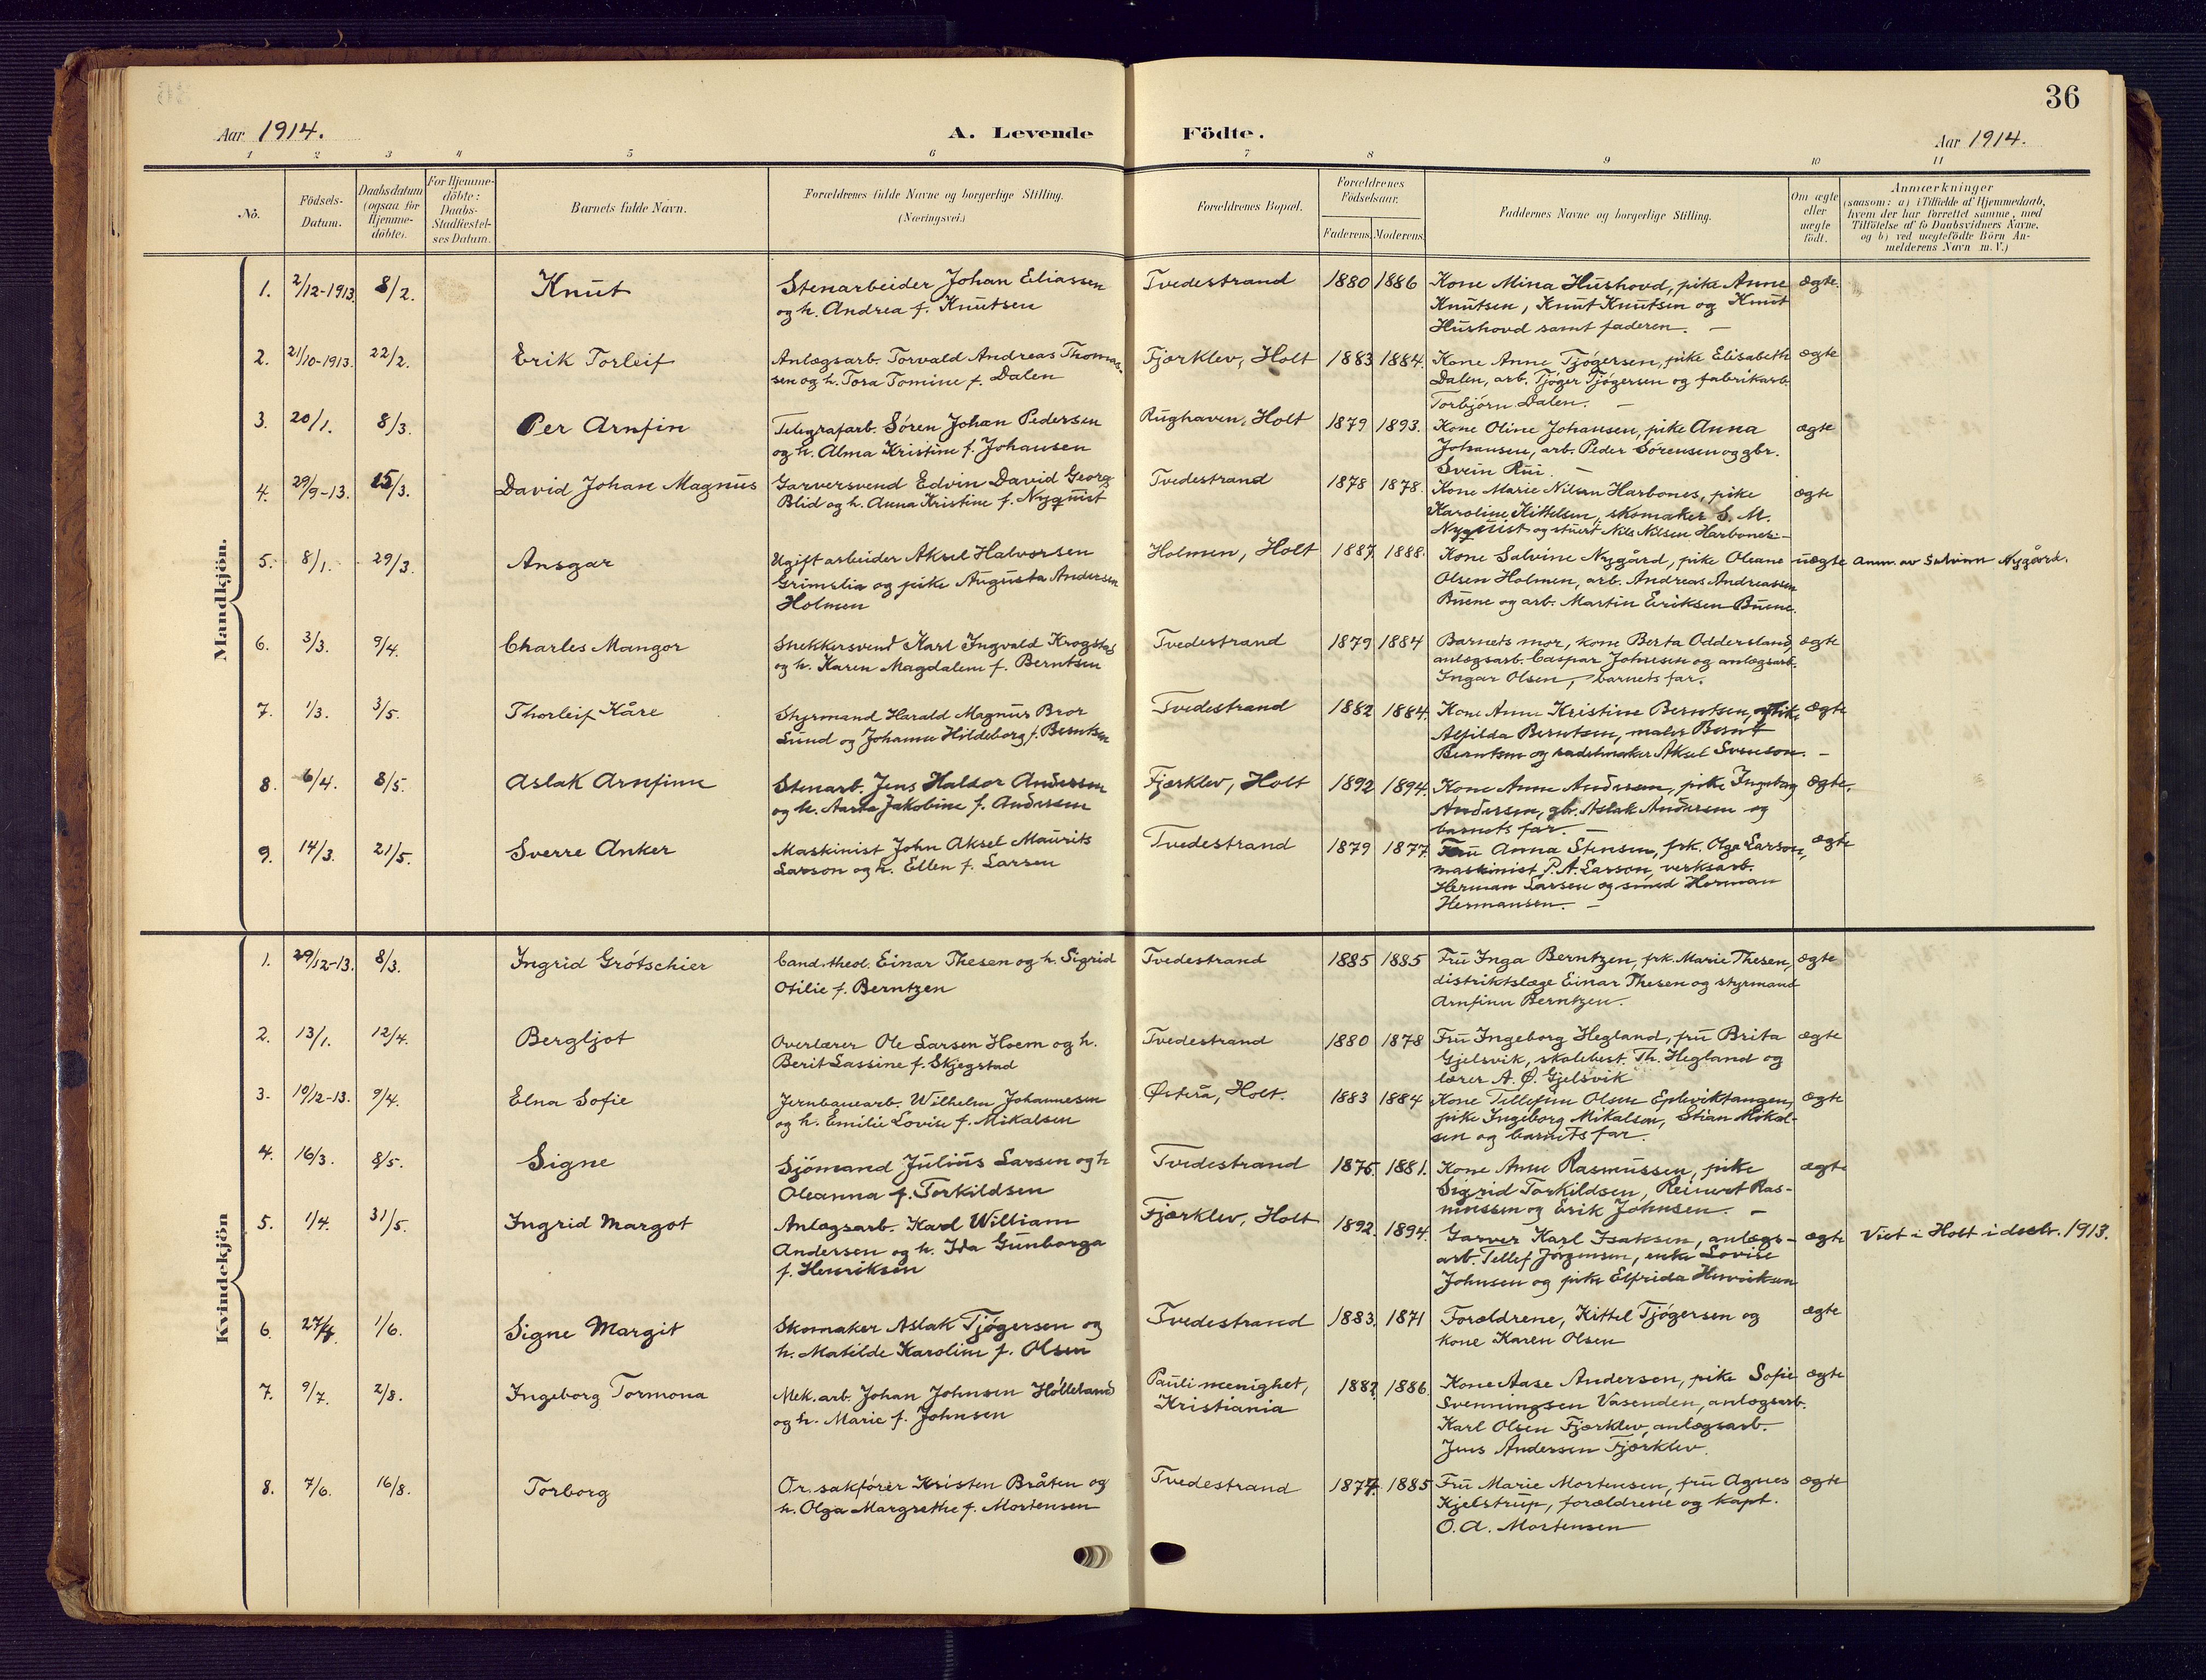 36
Aar 1914.
A. Levende Födte.
Aar 1914.
1 2 3 4 5 6 7 8 9 10 11
No.
Födsels-
Datum.
Daabsdatum
(ogsaa for
Hjemme-
döbte).
For Hjemme-
döbte:
Daabs-
Stadfæstel-
ses Datum.
Barnets fulde Navn.
Forældrenes fulde Navne og borgerlige Stilling.
(Næringsvei.)
Forældrenes Bopæl.
Forældrenes
Födselsaar.
Faderens. Moderens.
Faddernes Navne og borgerlige Stilling.
Om ægte
eller
uægte
födt.
Anmærkninger
(saasom: a) i Tilfælde af Hjemmedaab,
hvem der har forrettet samme, med
Tilföielse af to Daabsvidners Navne,
og b) ved uægtefödte Börn An-
melderens Navn m. V.)
Mandkjön.
1. 2/12-1913. 8/2. Knut Stenarbeider Johan Eliassen Tvedestrand 1880 1886 Kone Mina Hushovd, pike Anne ægte.
og h. Andrea f. Knutsen Knutsen, Knut Knutsen og Knut
Hushovd samt faderen. —
2. 21/10-1913. 22/2. Erik Torleif Anlægsarb. Torvald Andreas Thomas- Fjærklev, Holt 1883 1884. Kone Anne Tjögersen, pike Elisabeth ægte
sen og h. Tora Tomine f. Dalen Dalen, arb. Tjöger Tjögersen og fabrikarb.
Torbjörn Dalen. —
3. 20/1. 8/3. Per Arnfin Telegrafarb. Sören Johan Pedersen Rughaven, Holt 1879 1893. Kone Oline Johansen, pike Anna ægte
og h. Alma Kristine f. Johansen Johansen, arb. Peder Sörensen og gbr.
Svein Rui. —
4. 29/9-13. 15/3. David Johan Magnus Garversvend Edvin David Georg Tvedestrand 1878 1878. Kone Marie Nilsen Harbones, pike ægte
Blid og h. Anna Kristine f. Nyquist Karoline Kittelsen, skomaker S. M.
Nyquist og stuert Nils Nilsen Harbones. —
5. 8/1. 29/3. Ansgar Ugift arbeider Aksel Halvorsen Holmen, Holt 1887 1888. Kone Salvine Nygård, pike Oleane uægte Anm. av Salvine Nygård.
Grimslia og pike Augusta Andersen Olsen Holmen, arb. Andreas Andreassen
Holmen Buene og arb. Martin Eriksen Buene.
6. 3/3. 9/4. Charles Mangor Snekkersvend Karl Ingvald Krogstad Tvedestrand 1879 1884 Barnets mor, kone Berta Oddersland, ægte
og h. Karen Magdalene f. Berntsen anlægsarb. Caspar Johnsen og anlægsarb.
Ingar Olsen, barnets far.
7. 1/3. 3/5. Thorleif Kåre Styrmand Harald Magnus Bror Tvedestrand 1882 1884. Kone Anne Kristine Berntsen, pike ægte
Lund og Johanne Hildeborg f. Berntsen Alfilda Berntsen, maler Bernt
Berntsen og sadelmaker Aksel Svenson. —
8. 6/4. 8/5. Aslak Arnfinn Stenarb. Jens Halvor Andersen Fjærklev, Holt 1892 1894. Kone Anne Andersen, pike Ingeborg ægte.
og h. Aasta Jakobine f. Andersen Andersen, gb. Aslak Andersen og
barnets far. —
9. 14/3. 21/5. Sverre Anker Maskinist John Aksel Maurits Tvedestrand 1879 1877. Fru Anna Stensen, frk. Olga Larson, ægte
Larson og h. Ellen f. Larsen maskinist P. A. Larson, verksarb.
Herman Larsen og smed Herman
Hermansen. —
Kvindekjön
1. 29/12-13. 8/3. Ingrid Grötschier Cand. theol. Einar Thesen og h. Sigrid Tvedestrand 1885 1885 Fru Inga Berntzen, frk. Marie Thesen, ægte
Otilie f. Berntzen distriktslæge Einar Thesen og styrmand
Arnfinn Berntzen.
2. 13/1. 12/4. Bergljot Overlærer Ole Larsen Hoem og h. Tvedestrand 1880 1878 Fru Ingeborg Hegland, fru Brita ægte
Berit Lassine f. Skjegstad Gjelsvik, skolebest. Th. Hegland og
lærer A. Ø. Gjelsvik
3. 10/12-13. 9/4. Elna Sofie Jernbanearb. Wilhelm Johannesen Østerå, Holt. 1883 1884 Kone Tellefine Olsen Epleviktangen, ægte
og h. Emilie Lovise f. Mikalsen pike Ingeborg Mikalsen, Stian Mikal-
sen og barnets far.
4. 16/3. 8/5. Signe Sjömand Julius Larsen og h Tvedestrand 1875. 1881. Kone Anne Rasmussen, pike ægte
Oleanna f. Torkildsen Sigrid Torkildsen, Reinert Ras-
mussen og Erik Johnsen. —
5. 1/4. 31/5. Ingrid Margot Anlægsarb. Karl William Fjærklev, Holt 1892. 1894. Garver Karl Isaksen, anlægs- ægte Viet i Holt i decbr. 1913.
Andersen og h. Ida Gunborga arb. Tellef Jörgensen, enke Lovise
f. Henriksen Johnsen og pike Elfrida Henriksen
6. 27/4. 1/6. Signe Margit Skomaker Aslak Tjögersen og Tvedestrand 1883. 1871 Forældrene, Kittel Tjögersen og ægte
h. Matilde Karoline f. Olsen kone Karen Olsen
7. 9/7. 2/8. Ingeborg Tormona Mek. arb. Johan Johnsen Hölleland Pauli menighet, 1882. 1886. Kone Aase Andersen, pike Sofie ægte
og h. Marie f. Johnsen Kristiania Svenningsen Vasenden, anlægsarb.
Karl Olsen Fjærklev, anlægsarb.
Jens Andersen Fjærklev.
8. 7/6. 16/8. Torborg O.r. sakförer Kristen Bråten og Tvedestrand 1874. 1885 Fru Marie Mortensen, fru Agnes ægte
h. Olga Margrethe f. Mortensen Kjelstrup, forældrene og kapt.
O. A. Mortensen